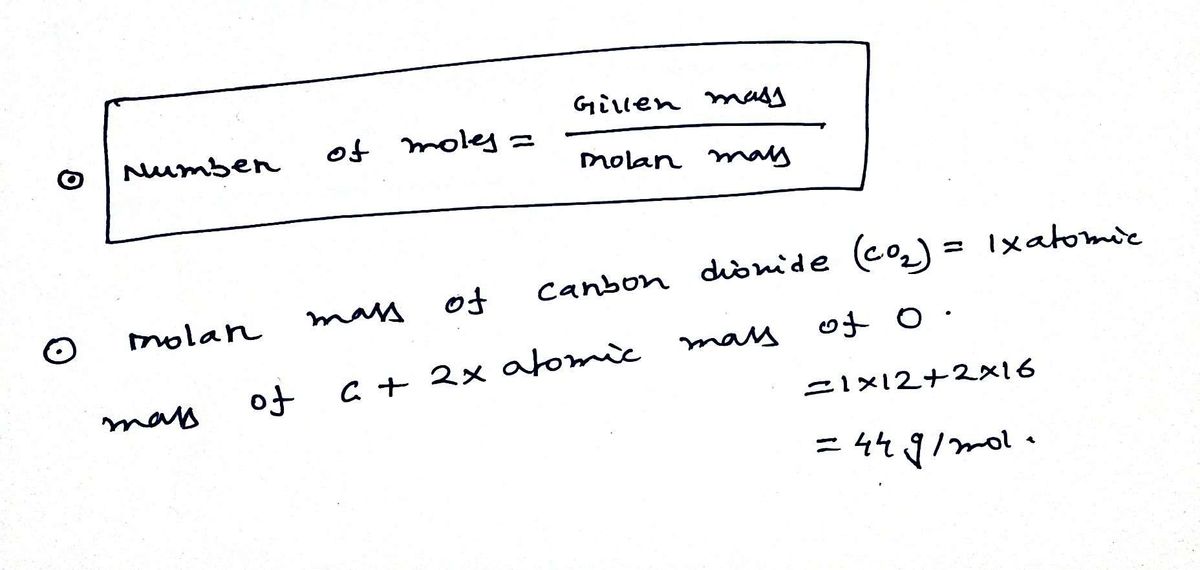 Given mass
Number of moles = ─────────
Molar mass
Molar mass of carbon dioxide (CO₂) = 1×atomic
mass of C + 2× atomic mass of O.
=1×12+2×16
= 44 g/mol.